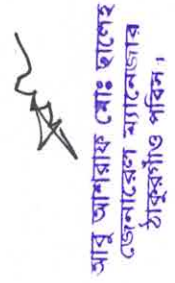 আবু আশরাফ মোঃ ছালেহ
জেনারেল ম্যানেজার
ঠাকুরগাঁও পবিস।